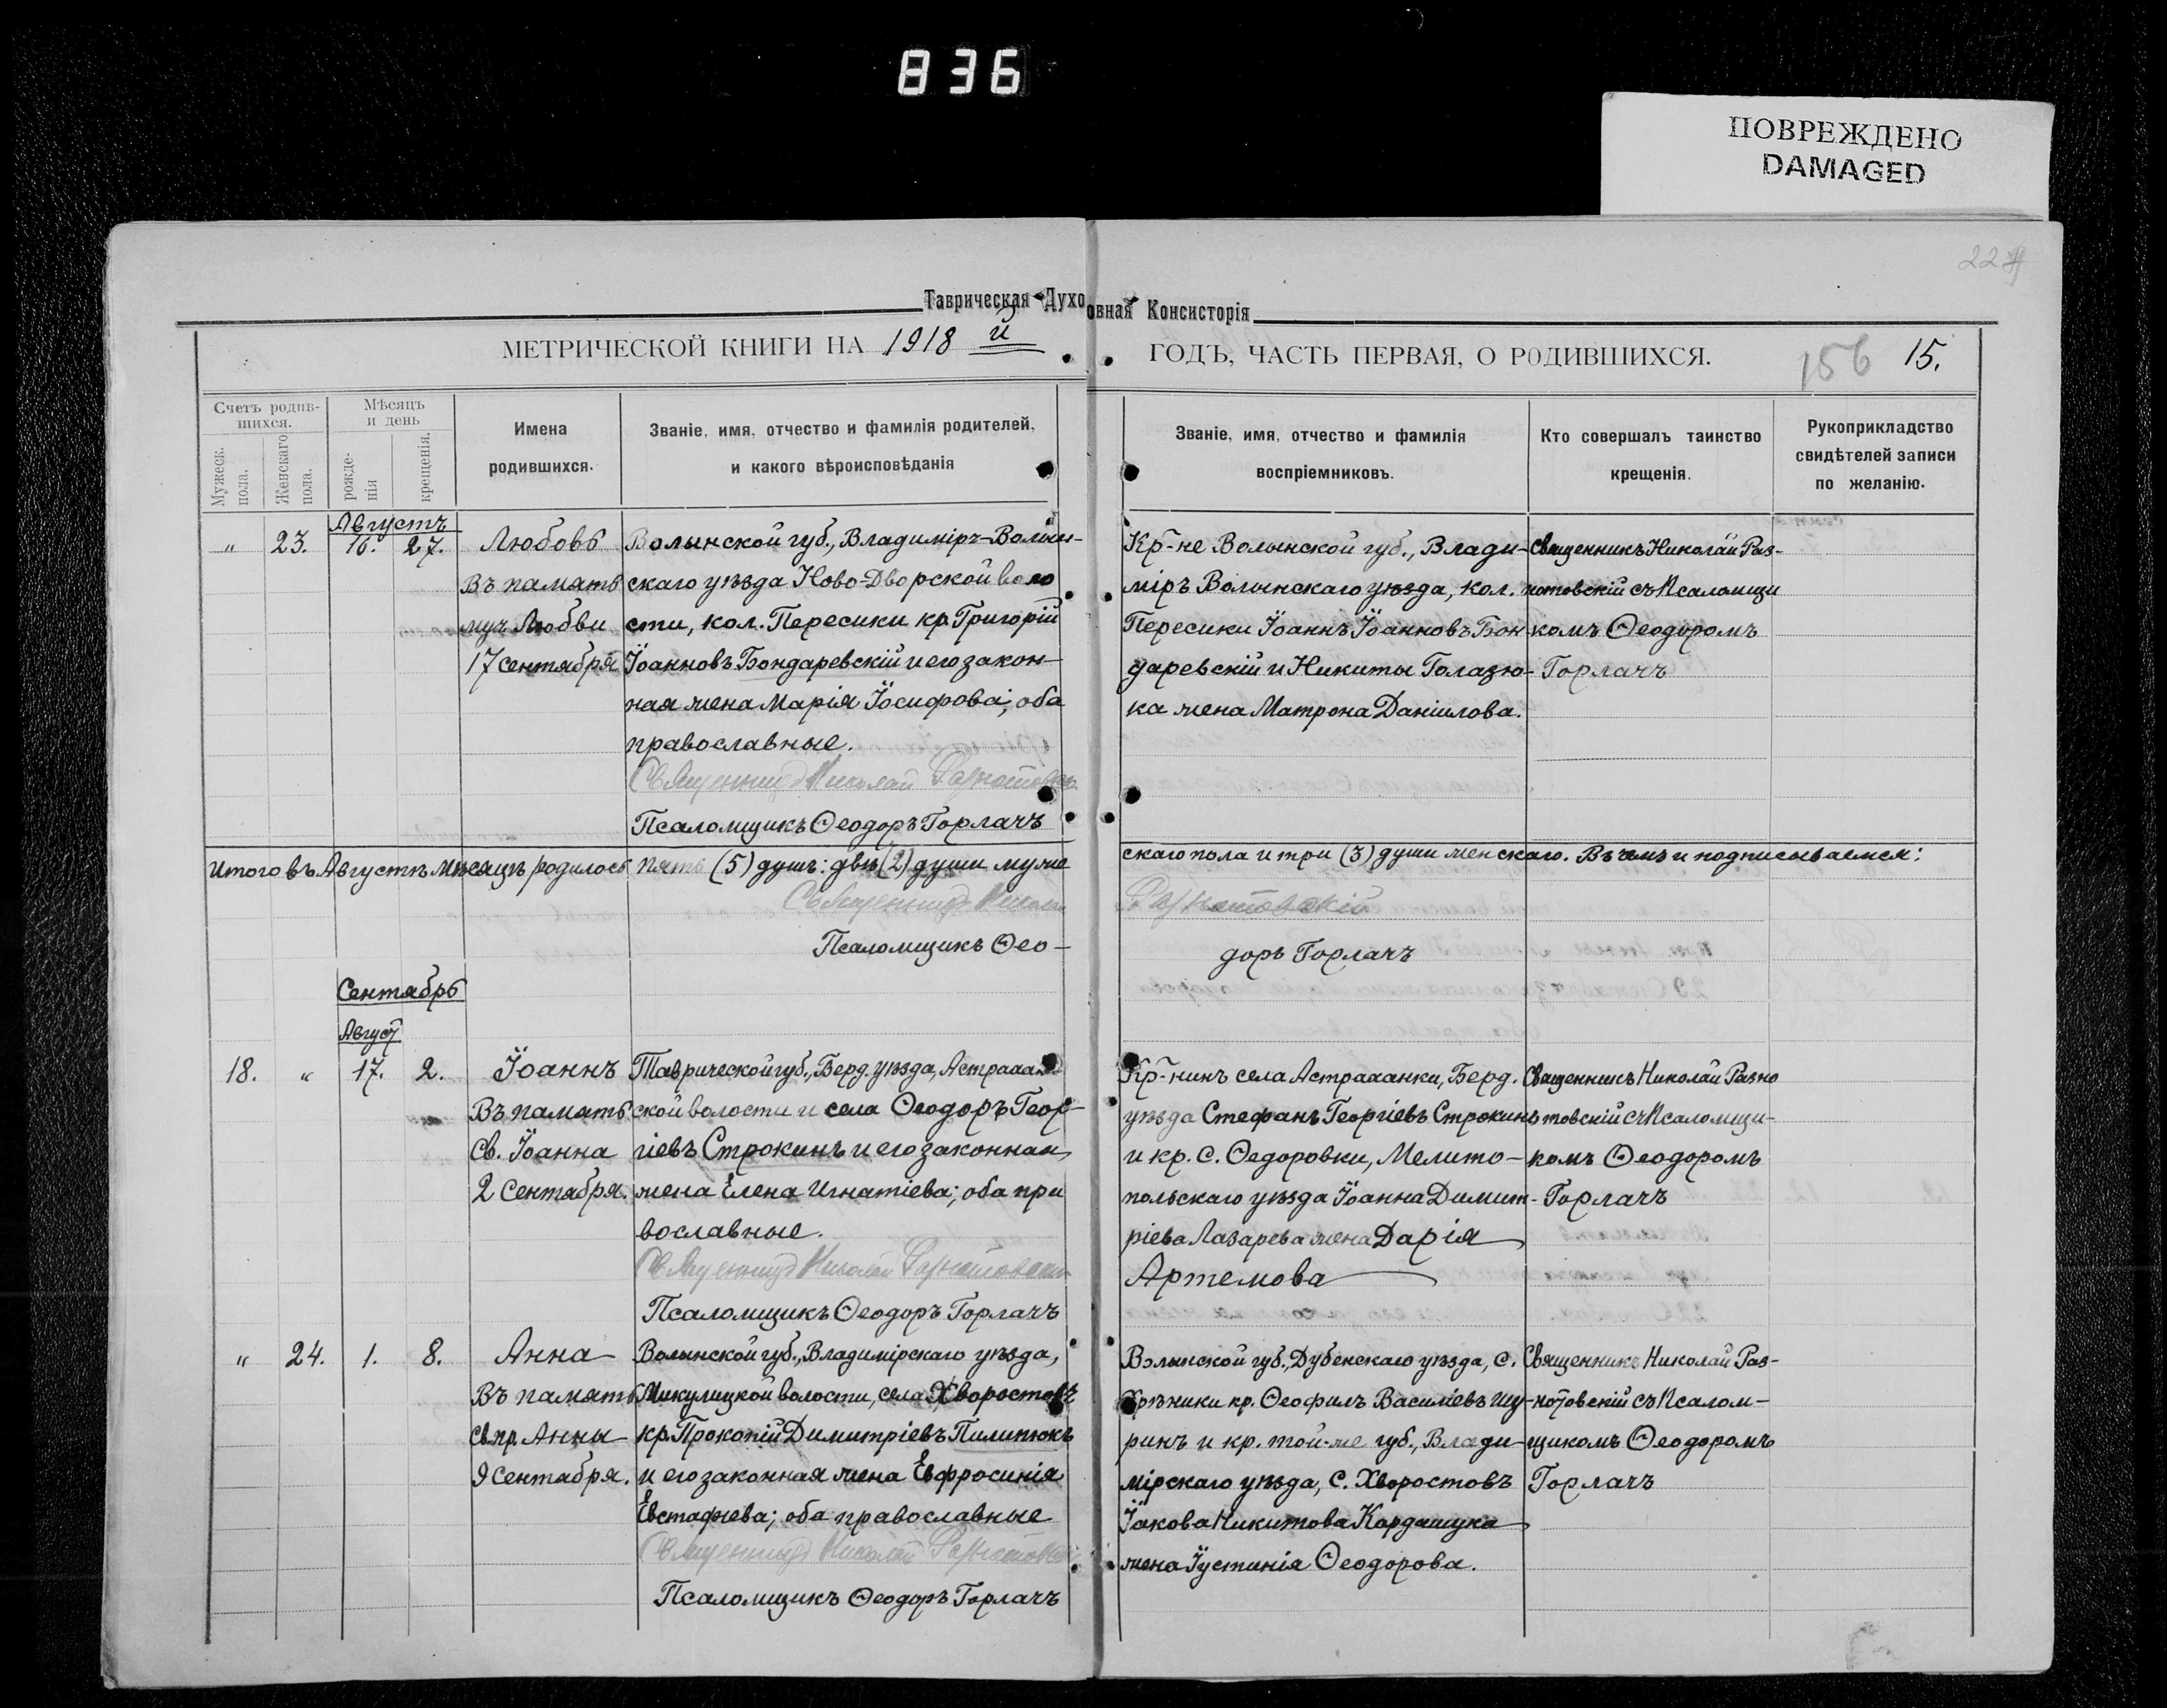 836
ПОВРЕЖДЕНО
DAMAGED
Таврическая Духовная Консисторія
МЕТРИЧЕСКОЙ КНИГИ НА 1918 й ГОДЪ, ЧАСТЬ ПЕРВАЯ, О РОДИВШИХСЯ.
156 15.
Счетъ родив-
шихся.
Мужеск.
пола.
Женскаго
пола.
Мѣсяцъ
и день
рожде-
нія
крещенія.
Имена
родившихся.
Званіе, имя, отчество и фамилія родителей,
и какого вѣроисповѣданія
Званіе, имя, отчество и фамилія
воспріемниковъ.
Кто совершалъ таинство
крещенія.
Рукоприкладство
свидѣтелей записи
по желанію.
Августъ
" 23. 16. 27.
Любовь
Въ память
муч. Любви
17 сентября
Волынской губ., Владиміръ-Волын-
скаго уѣзда Ново-Дворской воло
сти, кол. Пересики кр. Григорій
Іоанновъ Бондаревскій и его закон-
ная жена Марія Іосифова; оба
православные.
Священникъ Николай
Псаломщикъ Ѳеодоръ Горлачъ
Кр-не Волынской губ., Влади-
міръ Волынскаго уѣзда, кол.
Пересики Іоаннъ Іоанновъ Бон
даревскій и Никиты Голазю-
ка жена Матрона Даніилова.
Священникъ Николай Раз-
нотовскій съ Псаломщи
комъ Ѳеодоромъ
Горлачъ
Итого въ Августѣ мѣсяцѣ родилось пять (5) душъ: двѣ (2) души муже
скаго пола и три (3) души женскаго. Въ чемъ и подписываемся:
Священникъ Николай
Разнотовскій
Псаломщикъ Ѳео-
доръ Горлачъ
Сентябрь
Август
18. " 17. 2.
Іоаннъ
Въ память
св. Іоанна
2 Сентября.
Таврической губ., Берд. уѣзда, Астрахан
ской волости и села Ѳеодоръ Геор-
гіевъ Строкинъ и его законная
жена Елена Игнатіева; оба пра
вославные.
Священникъ Николай
Псаломщикъ Ѳеодоръ Горлачъ
Кр-нинъ села Астраханки, Берд.
уѣзда Стефанъ Георгіевъ Строкинъ
и кр. с. Ѳедоровки, Мелито-
польскаго уѣзда Іоанна Димит-
ріева Лазарева жена Дарія
Артемова
Священникъ Николай Разно
товскій съ Псаломщи-
комъ Ѳеодоромъ
Горлачъ
" 24. 1. 8.
Анна
Въ память
св. пр. Анны
9 Сентября.
Волынской губ., Владимірскаго уѣзда,
Микулицкой волости, села Хворостовъ
кр. Прокопій Димитріевъ Пилипюкъ
и его законная жена Евфросинія
Евстафіева; оба православные
Священникъ Николай
Псаломщикъ Ѳеодоръ Горлачъ
Волынской губ., Дубенскаго уѣзда, с.
Хрѣники кр. Ѳеофилъ Василіевъ Щу-
ринъ и кр. той-же губ., Влади-
мірскаго уѣзда, с. Хворостовъ
Іакова Никитова Кардашука
жена Іустинія Ѳеодорова.
Священникъ Николай Раз-
нотовскій съ Псалом-
щикомъ Ѳеодоромъ
Горлачъ